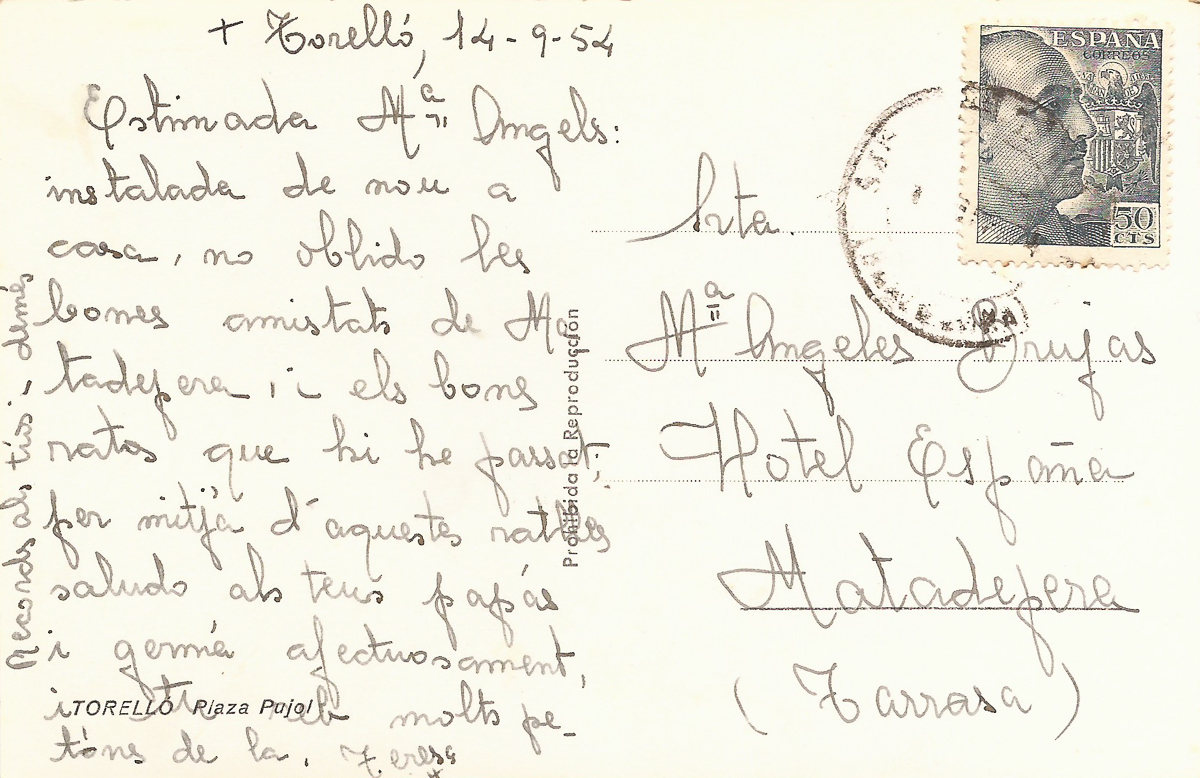 + Torelló, 14-9-54
Estimada Mª Angels:
instalada de nou a
casa, no oblido les
bones amistats de Ma
tadepera, i els bons
ratos que hi he passat;
per mitjà d'aquestes ratlles
saludo als teus papás
i germá afectuosament,
i tu reb molts pe-
tóns de la, Teresa
Records als tís i demés
TORELLÓ Plaza Pujol
Prohibida la Reproducción
ESPAÑA
CORREOS
50
CTS
Srta.
Mª Angeles Brujas
Hotel España
Matadepera
(Tarrasa)